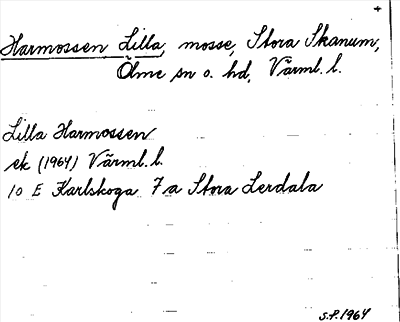 +
Harmossen Lilla, mosse, Stora Skanum,
Ölme sn o. hd, Värml. l.
Lilla Harmossen
ek (1964) Värml. l.
10 E Karlskoga 7 a Stora Lerdala
S.P. 1964